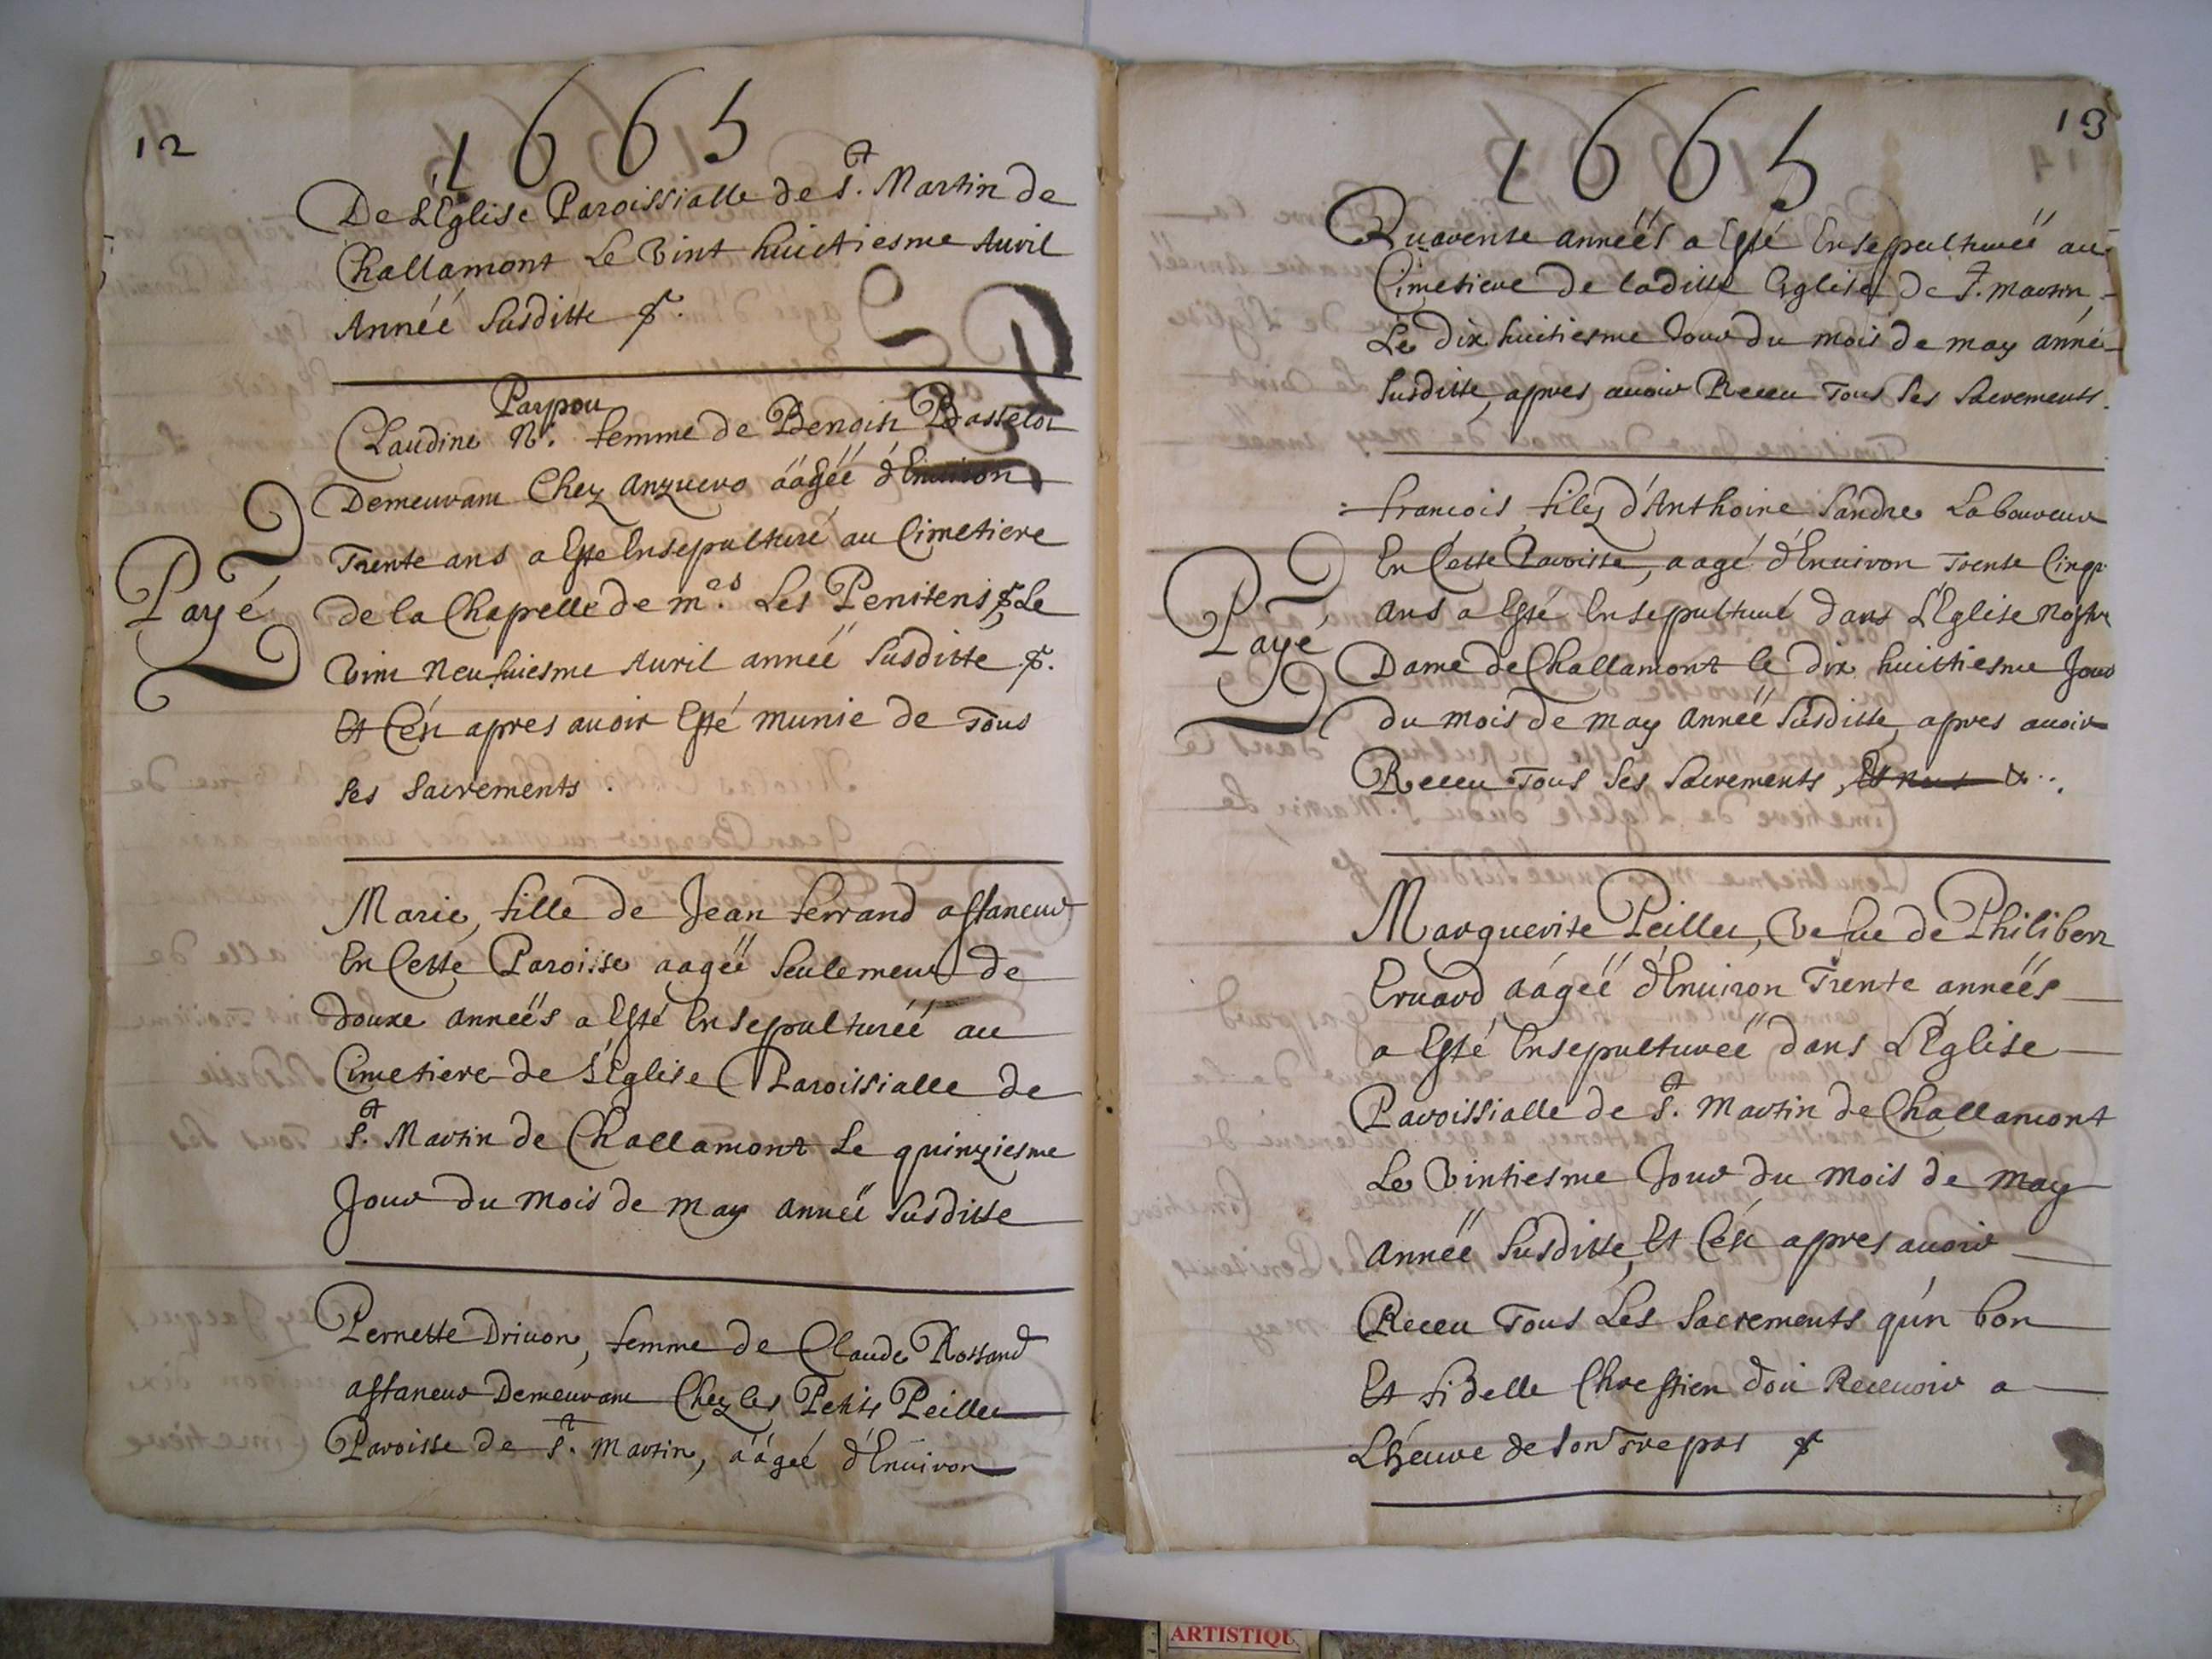 12
1665
De L'Eglise Paroissialle de St. Martin de
Challamont Le Vint huictiesme Auril
Année Susditte
Parpou
Claudine N. femme de Benoist Basselor
Demeurant Chez Anzuero aâgéé d'Enuiron
Trente ans a Esté Ensepulturé au Cimetiere
Payé
de la Chapelle de mes. Les Penitens, Le
Vint Neufuiesme Auril année Susditte
Et Cést apres auoir Esté munie de Tous
Ses Sacrements.
Marie, fille de Jean ferrand affaneur
En Cette Paroisse aagéé Seulement de
douxe années a Esté Ensepulturéé au
Cimetiere de L'Eglise Paroissialle de
St. Martin de Challamont Le quinziesme
Jour du mois de may année Susditte
Pernette Driuon, femme de Claude Rossand
affaneur Demeurant Chez les Petits Peilleu
Paroisse de St. Martin, aâgéé d'Enuiron
13
1665
Quarente années a Esté Ensepulturéé au
Cimetiere de laditte Eglise de St. Martin
Le Dix huitiesme Jour du mois de may année
Susditte, apres auoir Receu Tous Ses Sacrements.
francois, filz d'Anthoine Sandre Laboureur
En Cette Paroisse, aagé d'Enuiron Trente Cinq
Payé
ans a Esté Ensepulturé dans L'Eglise Nostre
Dame de Challamont le dix huittiesme Jour
du mois de may année Susditte, apres auoir
Receu Tous Ses Sacrements
Marguerite Peilleu, Vefue de Philibert
Eruard, aâgéé d'Enuiron Trente années
a Esté Ensepulturéé dans L'Eglise
Paroissialle de St. Martin de Challamont
Le Vintiesme Jour du mois de may
Année Susditte, Et Cést apres auoir
Receu Tous Les Sacrements qu'n bon
Et fidelle Chrestien doit Receuoir a
L'héure de Son Trepas
ARTISTIQU